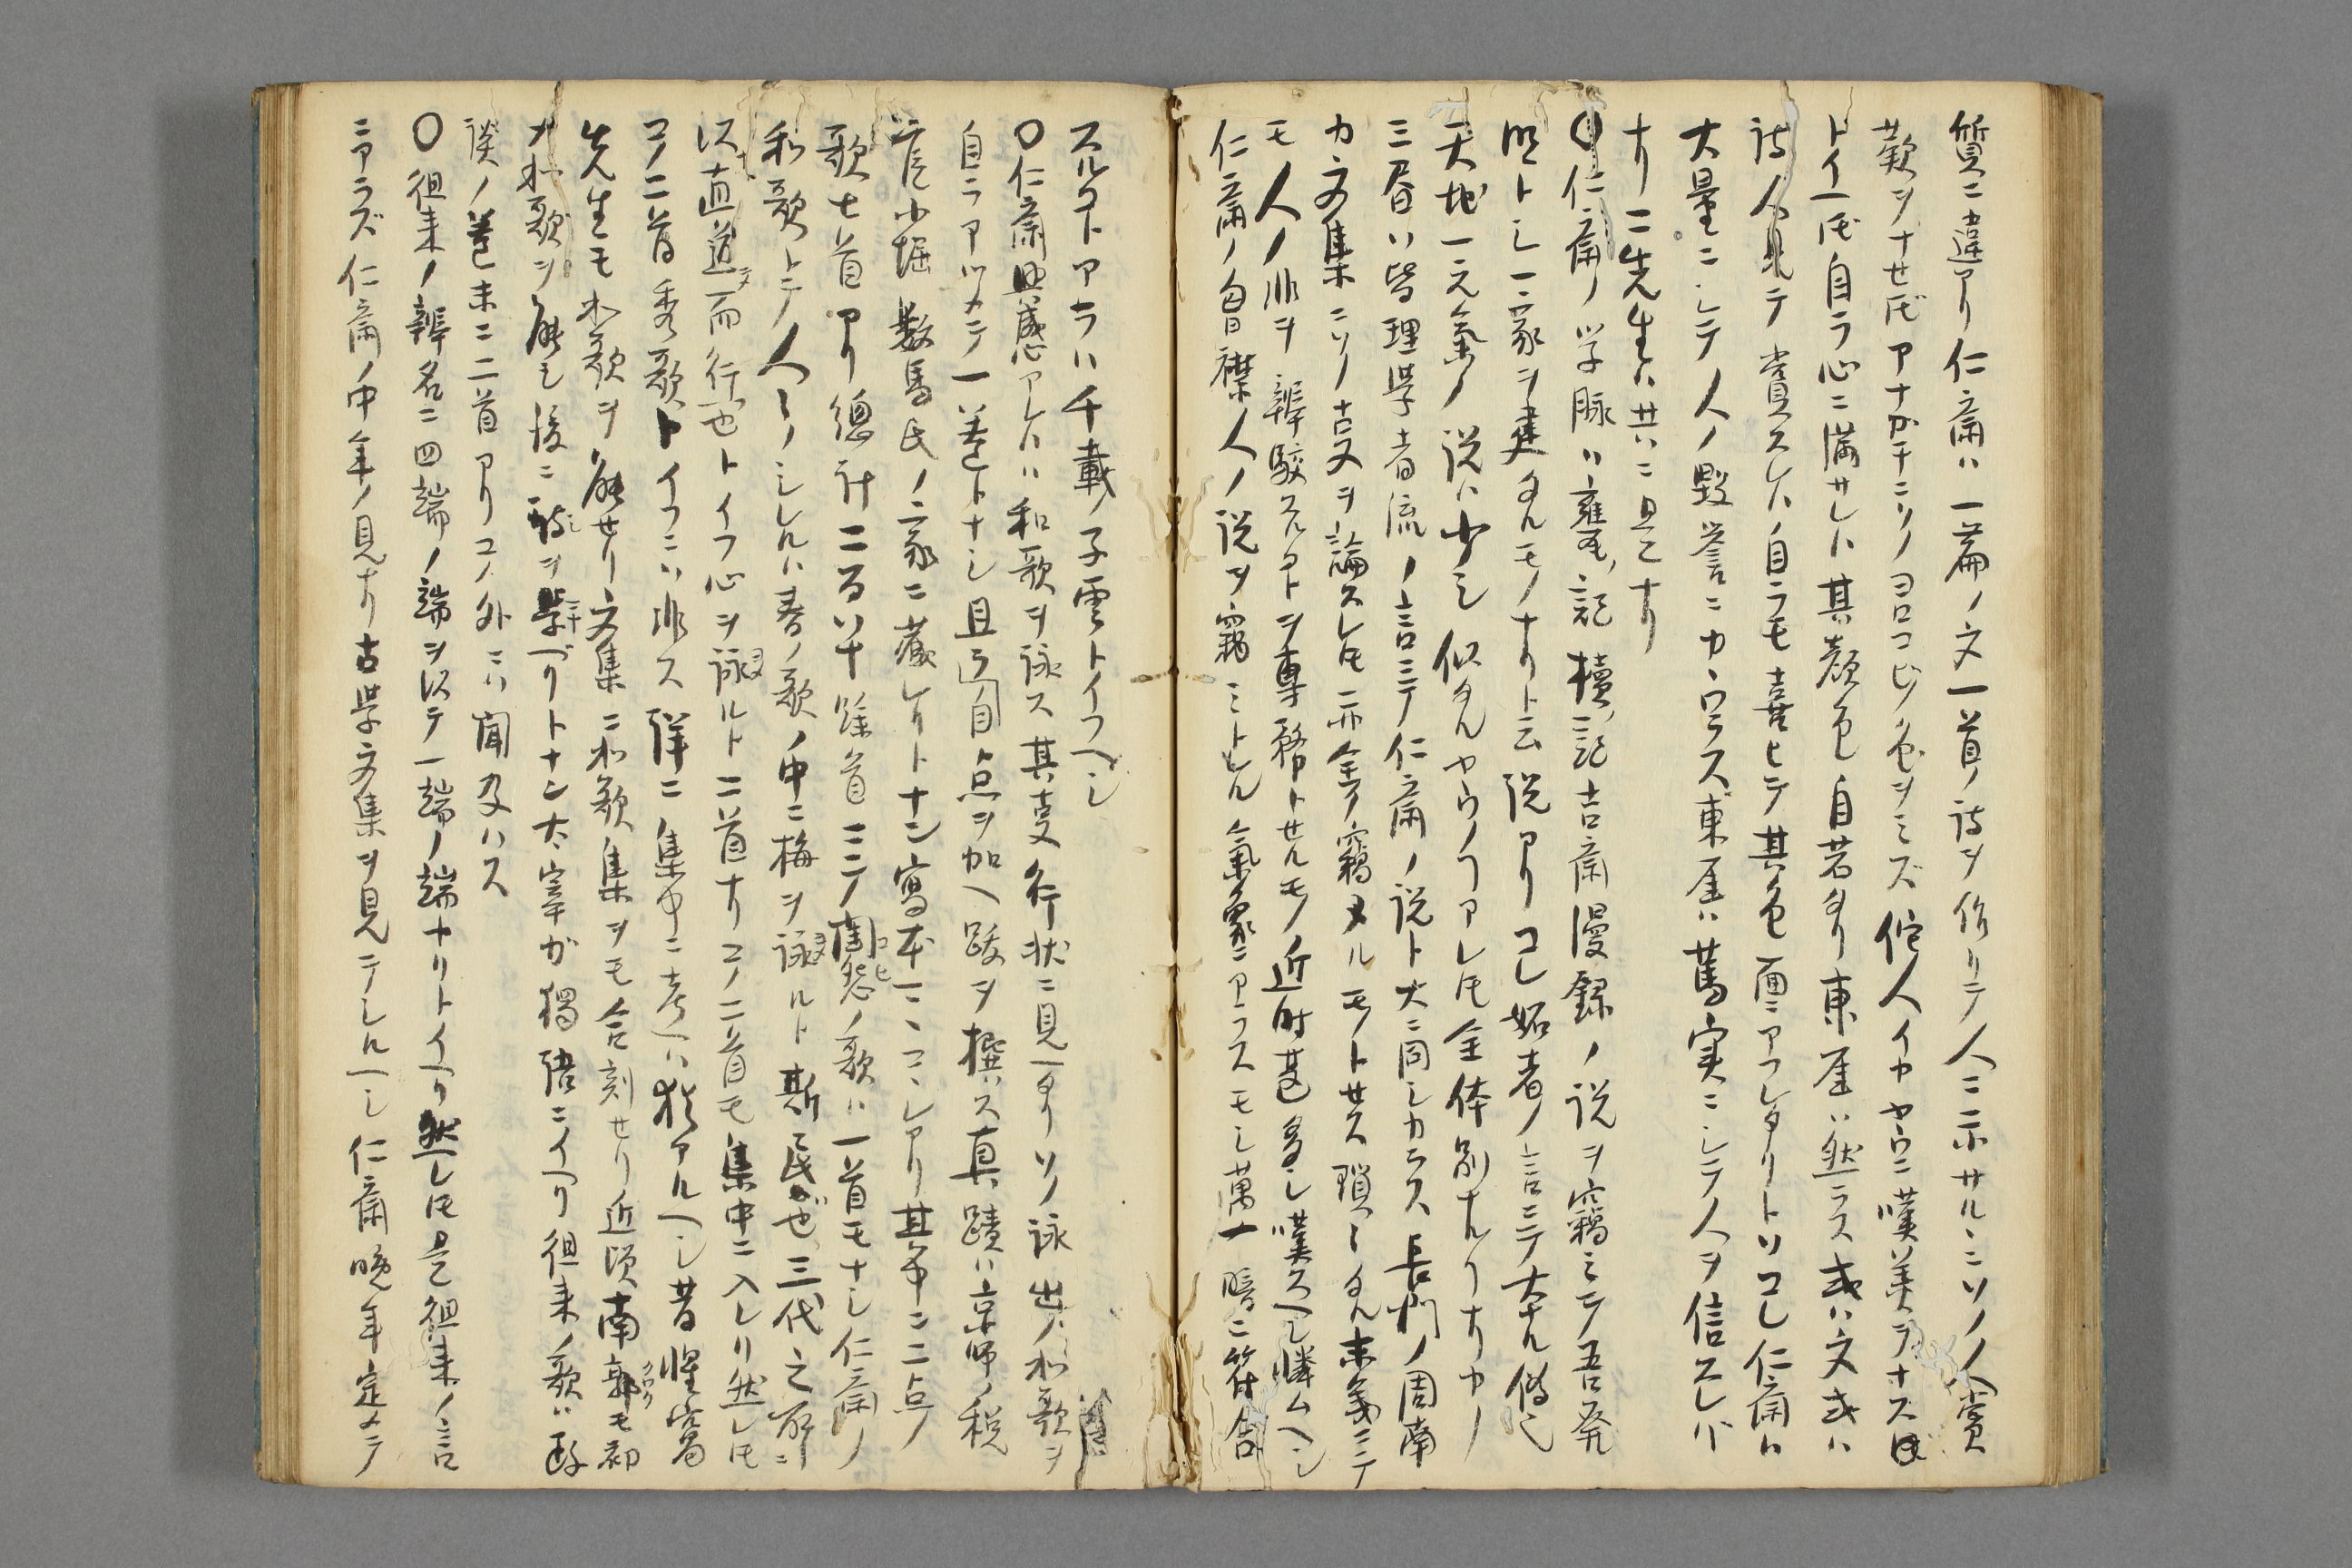 質ニ違アリ仁斎ハ一篇ノ文一首ノ詩ヲ作リテ人ニ示サルヽニソノ人賞
歎ヲナセ𪜈アナガチニソノヨロコビノ色ヲミズ佗人イカヤウニ嘆美ヲナスト
トイヘ𪜈自ラ心ニ満サレハ其顔色自若タリ東厓ハ然ラス或ハ文或ハ
詩人見テ賞スレハ自ラモ喜ヒテ其色面ニアラハレタリトソコレ仁斎ハ
大量ニシテ人ノ毀誉ニカヽワラス東厓ハ篤実ニシテ人ヲ信スレバ
ナリ二先生ハ共ニ是ナリ
〇仁斎ノ学脉ハ甕記櫝記吉斎漫録ノ説ヲ窃ミテ吾発
明トシ一家ヲ建タルモノナリト云説アリコレ妬者ノ言ニテ大ナル僻
天地一元氣ノ説ハ少シ似タルヤウノアレ𪜈全体別ナルナリカノ
三書ハ皆理学者流ノ言ニテ仁斎ノ説ト大ニ同シカラス長門ノ周南
カ文集ニソノ古文ヲ論スレ𪜈亦金ノ窃メルモノトセス瑣〻タル末義ニテ
モ人ノ非ヲ辨駁スルコトヲ専務トセルモノ近時甚多シ嘆スヘシ憐ムヘシ
仁斎ノ胷襟人ノ説ヲ窃ミトル氣象ニアラスモシ萬一暗ニ符合
スルコトアラハ千載ノ子雲トイフヘシ
〇仁斎興感アレハ和歌ヲ詠ス其事行状ニ見ヘタリソノ詠出ノ和歌ヲ
自ラアツメテ一巻トナシ且自点ヲ加ヘ跋ヲ撰ス真蹟ハ京師ノ税
官小堀数馬氏ノ家ニ蔵レリトナン寫本ハマヽコレアリ其中ニ二点ノ
歌七首アリ總計二百八十餘首ニテ閨怨ノ歌ハ一首モナシ仁斎ノ
和歌トテ人〻ノシレルハ春ノ歌ノ中ニ梅ヲ詠ルト斯民也三代之所
以直道而行也トイフ心ヲ詠ルト二首ナリコノ二首モ集中ニ入レリ然レ𪜈
コノ二首秀歌トイフニハ非ス詳ニ集中ニ考ヘハ猶アルヘシ昔惺窩
先生モ和歌ヲ能セリ文集ニ和歌集ヲモ合刻セリ近頃南郭モ初
メ和歌ヲ能シ後ニ詩ヲ学ベリトナン太宰ガ獨語ニイヘリ徂来ノ歌ハ政
談ノ巻末ニ二首アリコノ外ニハ聞及ハス
〇徂来ノ辨名ニ四端ノ端ヲ以テ一端ノ端ナリトイヘリ然レ𪜈是徂来ノ言
ニアラズ仁斎ノ中年ノ見ナリ古学文集ヲ見テシルヘシ仁斎晩年定メテ